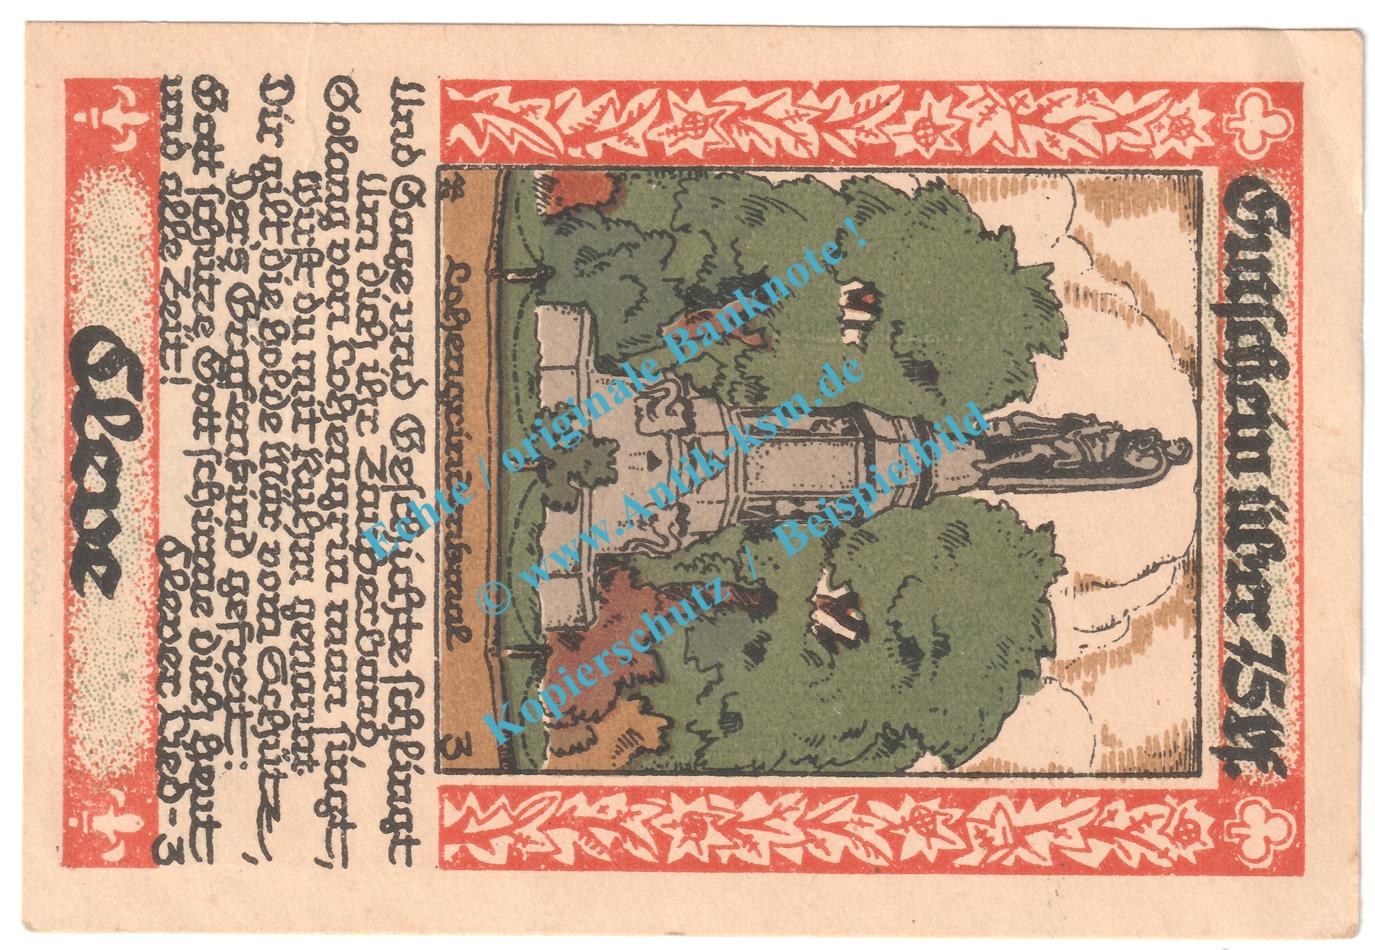 Gutschein über 75 Pf.
Lohengrindenkmal 3
Und Sage und Geschichte schlingt
Um dich ihr Zauberband
Solang von Lohengrin man singt,
Wirst du mit Ruhm genannt.
Dir gilt die holde Mär vom Schütz,
Der's Grafenkind gefreit:
Gott schütze, Gott schirme dich heut
und alle Zeit! Clever Lied - 3
Cleve
Echte / originale Banknote !
© www.Antik-ksm.de
Kopierschutz / Beispielbild